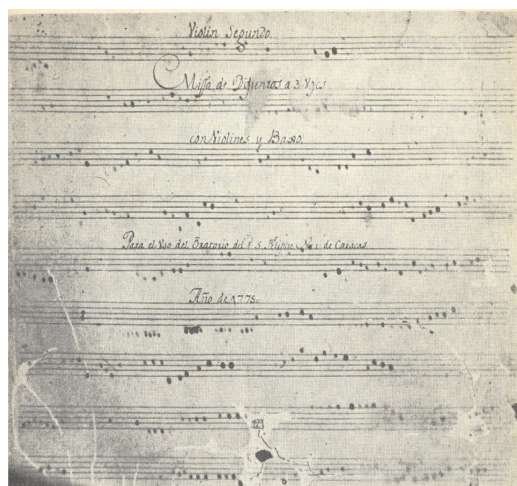 Violin Segundo.
Missa de Difuntos a 3 Vozs
con Violines y Baxo.
Para el Uso del Oratorio del S. Neri de Caracas
Año de 1775.